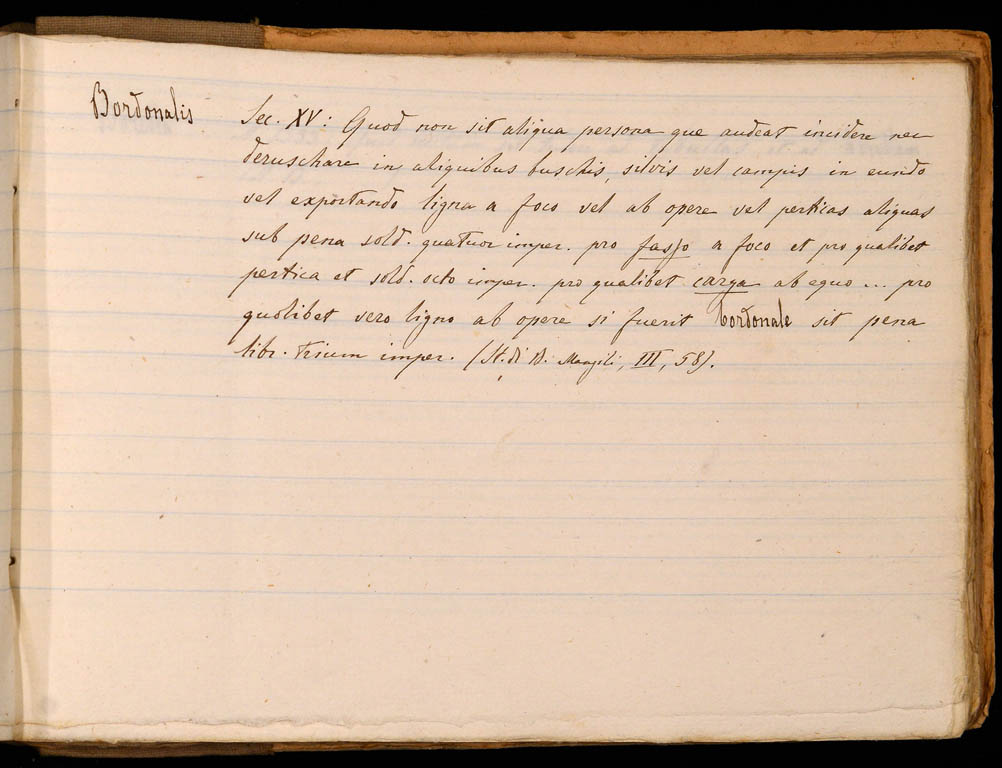 Bordonalis Sec. XV: Quod non sit aliqua persona que audeat incidere nec
deruschare in aliquibus buschis, silvis vel campis in eundo
vel exportando ligna a foco vel ab opere vel perticas aliquas
sub pena sold. quatuor imper. pro fasso a foco et pro qualibet
pertica et sold. octo imper. pro qualibet carga ab equo ... pro
quolibet vero ligno ab opere si fuerit bordonale sit pena
libr. trium imper. (St. di B. III, 58).